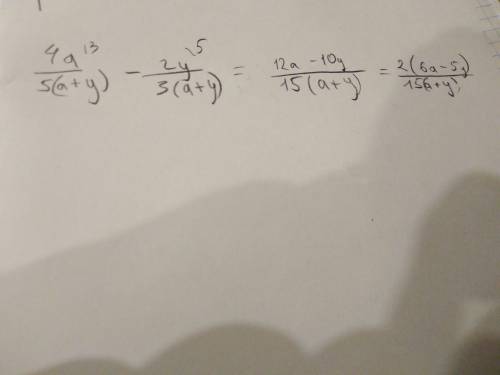 4a\3/5(a+y) - 2y\5/3(a+y) = 12a-10y/15(a+y) = 2(6a-5y)/15(a+y)